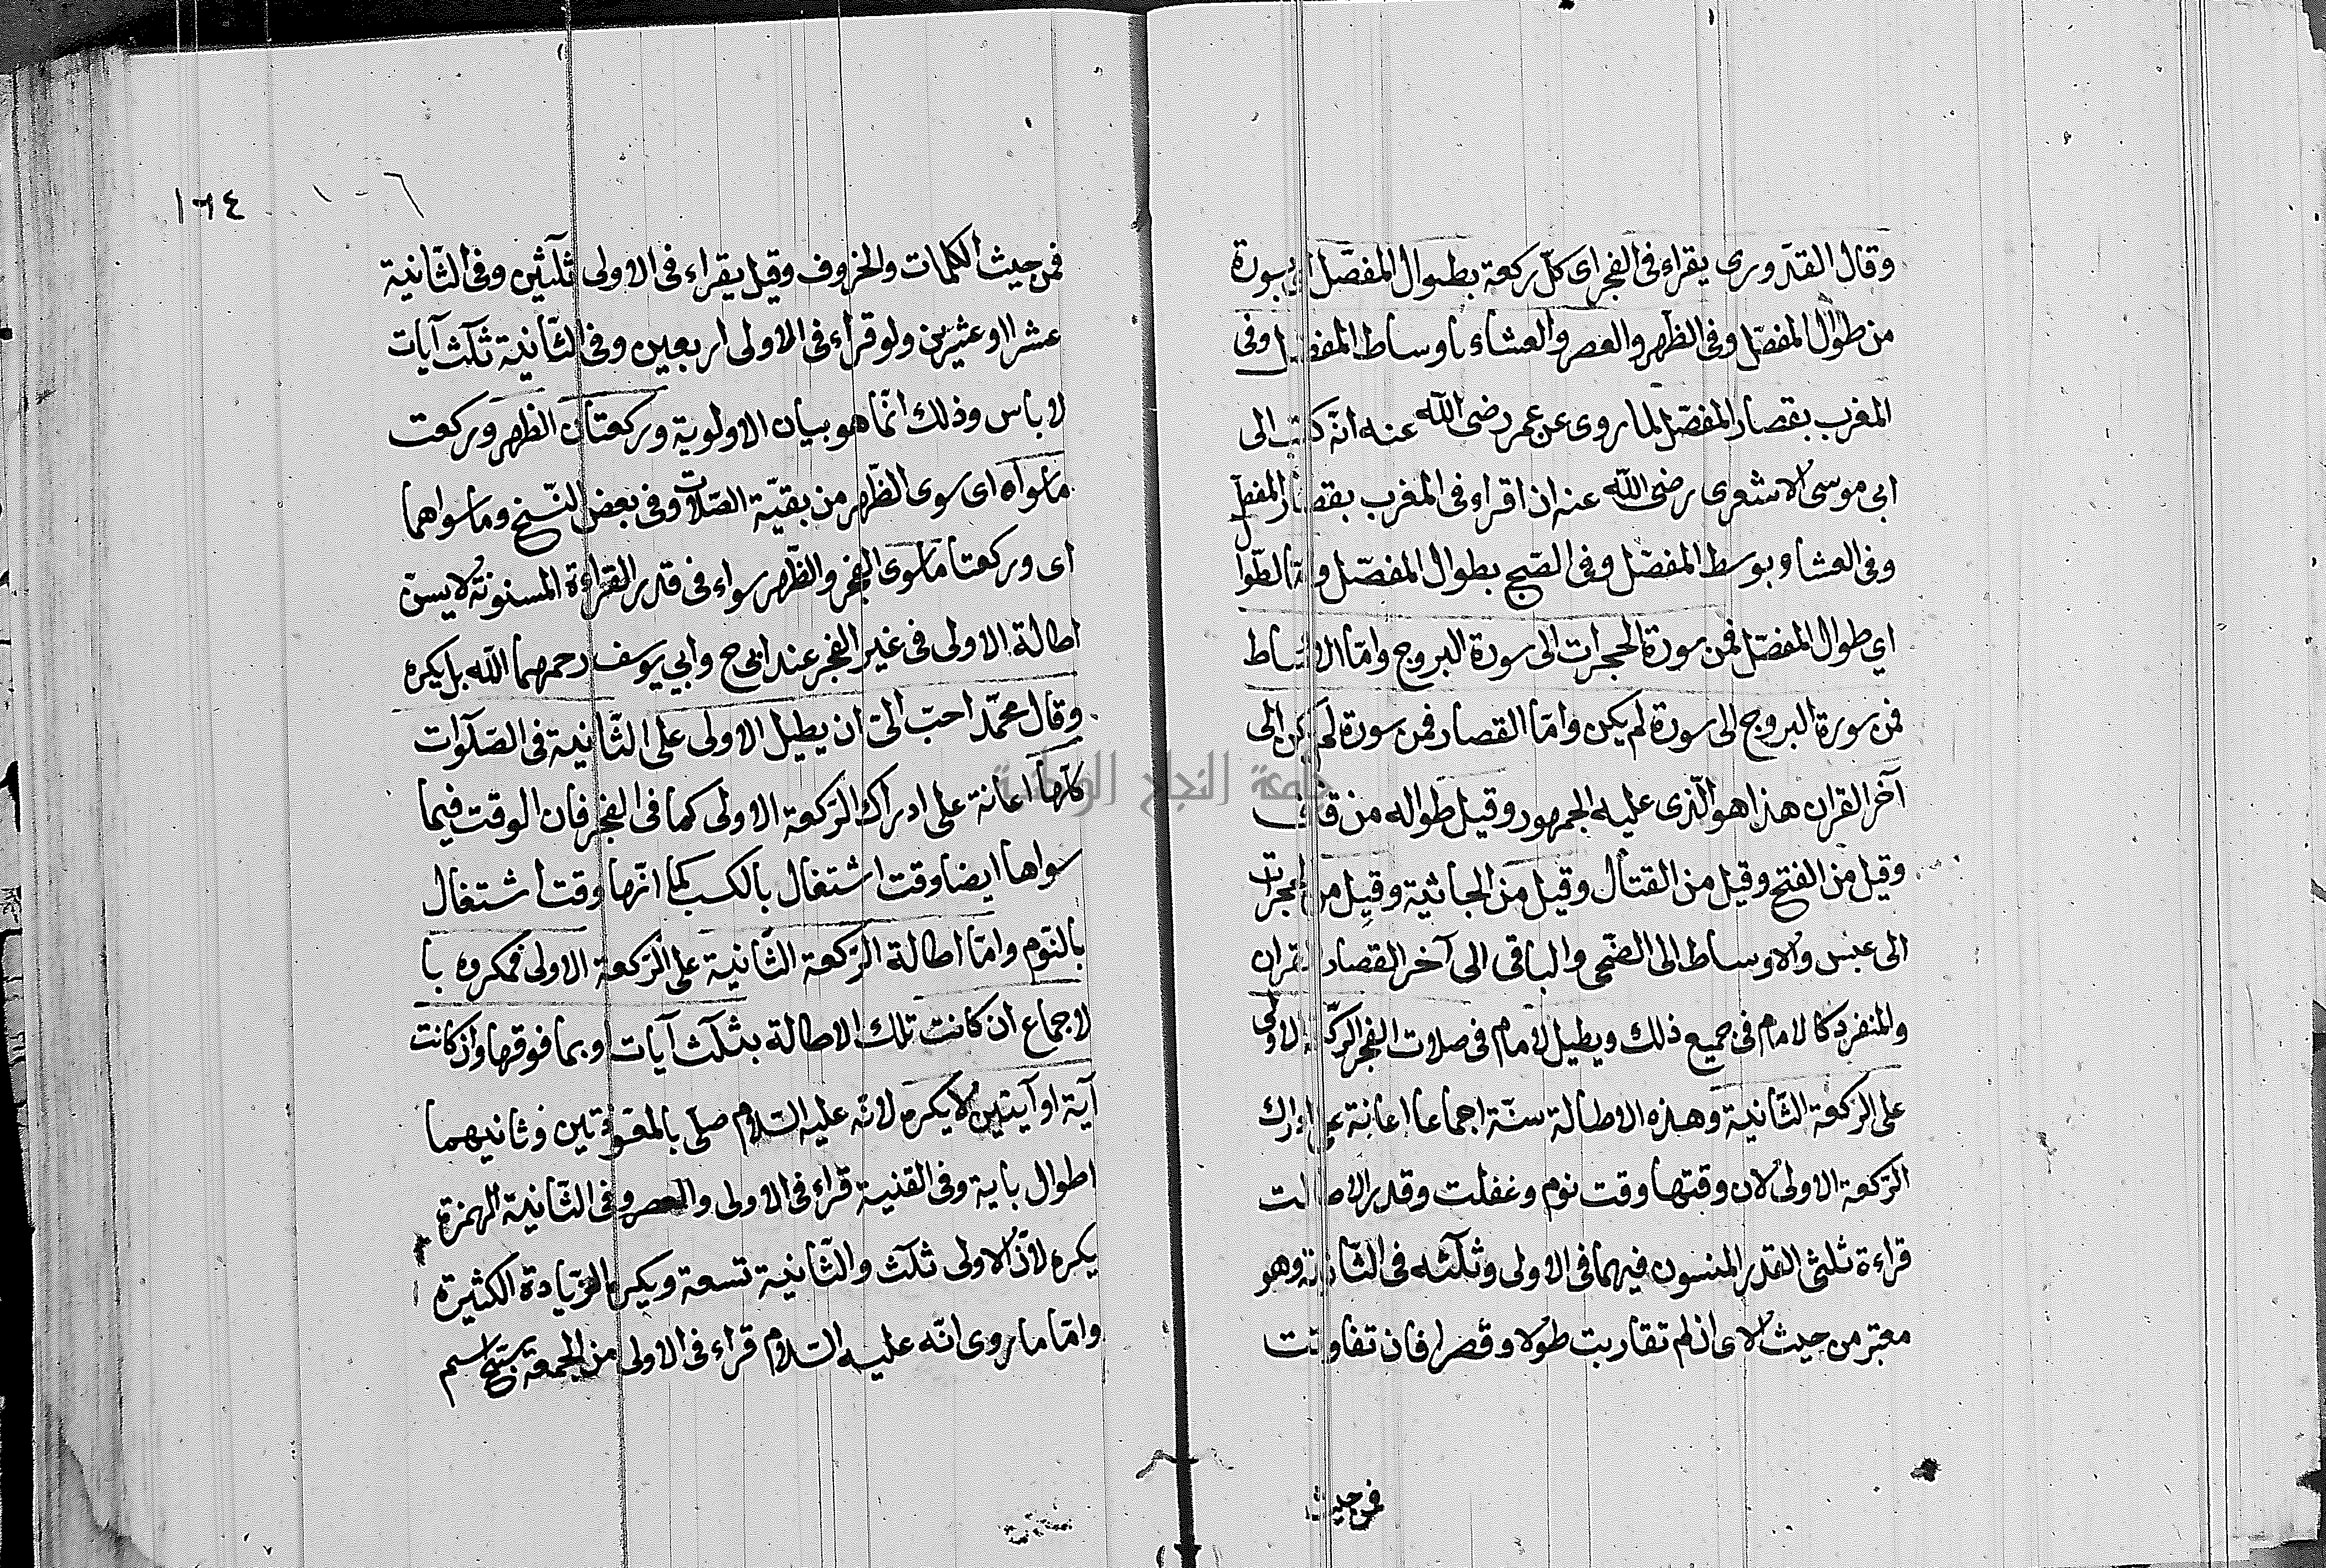 وقال القدورى يقراء فى الفجر اى كلّ ركعة بطوال المفصّل اى بسورة
من طوال المفصّل وفى الظهر والعصر والعشاء باوساط المفصّل وفى
المغرب بقصار المفصّل لما روى عن عمر رضى الله عنه انّه كتب الى
ابى موسى الاشعرى رضى الله عنه ان اقراء فى المغرب بقصار المفصّل
وفى العشاء بوسط المفصّل وفى الصّبح بطوال المفصّل وامّا الطّوا
اي طوال المفصّل فمن سورة الحجرات الى سورة البروج وامّا الاوساط
فمن سورة البروج الى سورة لم يكن وامّا القصار فمن سورة لم يكن الى
آخر القران هذا هو الّذى عليه الجمهور وقيل طواله من قاف
وقيل من الفتح وقيل من القتال وقيل من الجاثية وقيل من الحجرات
الى عبس والاوساط الى الضّحى والباقى الى آخر القصار القران
والمنفرد كالامام فى جميع ذلك ويطيل الامام فى صلات الفجر الركعة الاولى
على الرّكعة الثّانية وهذه الاطالة سنّة اجماعا اعانة على ادراك
الرّكعة الاولى لان وقتها وقت نوم وغفلت وقدر الاطالت
قراءة ثلثى القدر المنسون فيهما فى الاولى وثلثه فى الثّانية وهو
معتبر من حيث الاى ان لم تقاربت طولا وقصرا فان تفاوتت
فمن حيث
١٦٤
فمن حيث الكلمات والحروف وقيل يقراء فى الاولى ثلثين وفى الثّانية
عشرا او عشرين ولو قراء فى الاولى اربعين وفى الثّانية ثلث آيات
لا باس وذلك انّما هو بيان الاولوية وركعتان الظهر وركعت
ماسواه اى سوى الظّهر من بقيّة الصّلات وفى بعض النّسخ وماسواهما
اى وركعتا ماسوى الفجر والظّهر سواء فى قدر القراءة المسنونة لا يسنّ
اطالة الاولى فى غير الفجر عند ابى ح وابي يوسف رحمهما الله بل يكره
وقال محمّد احبّ الىّ ان يطيل الاولى على الثّانية فى الصّلوات
كلّها اعانة على ادراك الرّكعة الاولى كما فى الفجر فان الوقت فيما
سواها ايضا وقت اشتغال بالكسب كما انّها وقت اشتغال
بالنّوم وامّا اطالة الرّكعة الثّانية على الرّكعة الاولى فمكروه با
لاجماع ان كانت تلك الاطالة بثلث آيات او بما فوقها وان كانت
آية او آيتين لا يكره لانّه عليه السّلام صلّى بالمعوّذتين وثانيهما
اطوال باية وفى القنية قراء فى الاولى والعصر وفى الثّانية الهمزة
يكره لانّ الاولى ثلث والثّانية تسعة ويكره الزّيادة الكثيرة
وامّا ما روى انّه عليه السّلام قراء فى الاولى من الجمعة بسبّح اسم
جامعة النجاح الوطنية